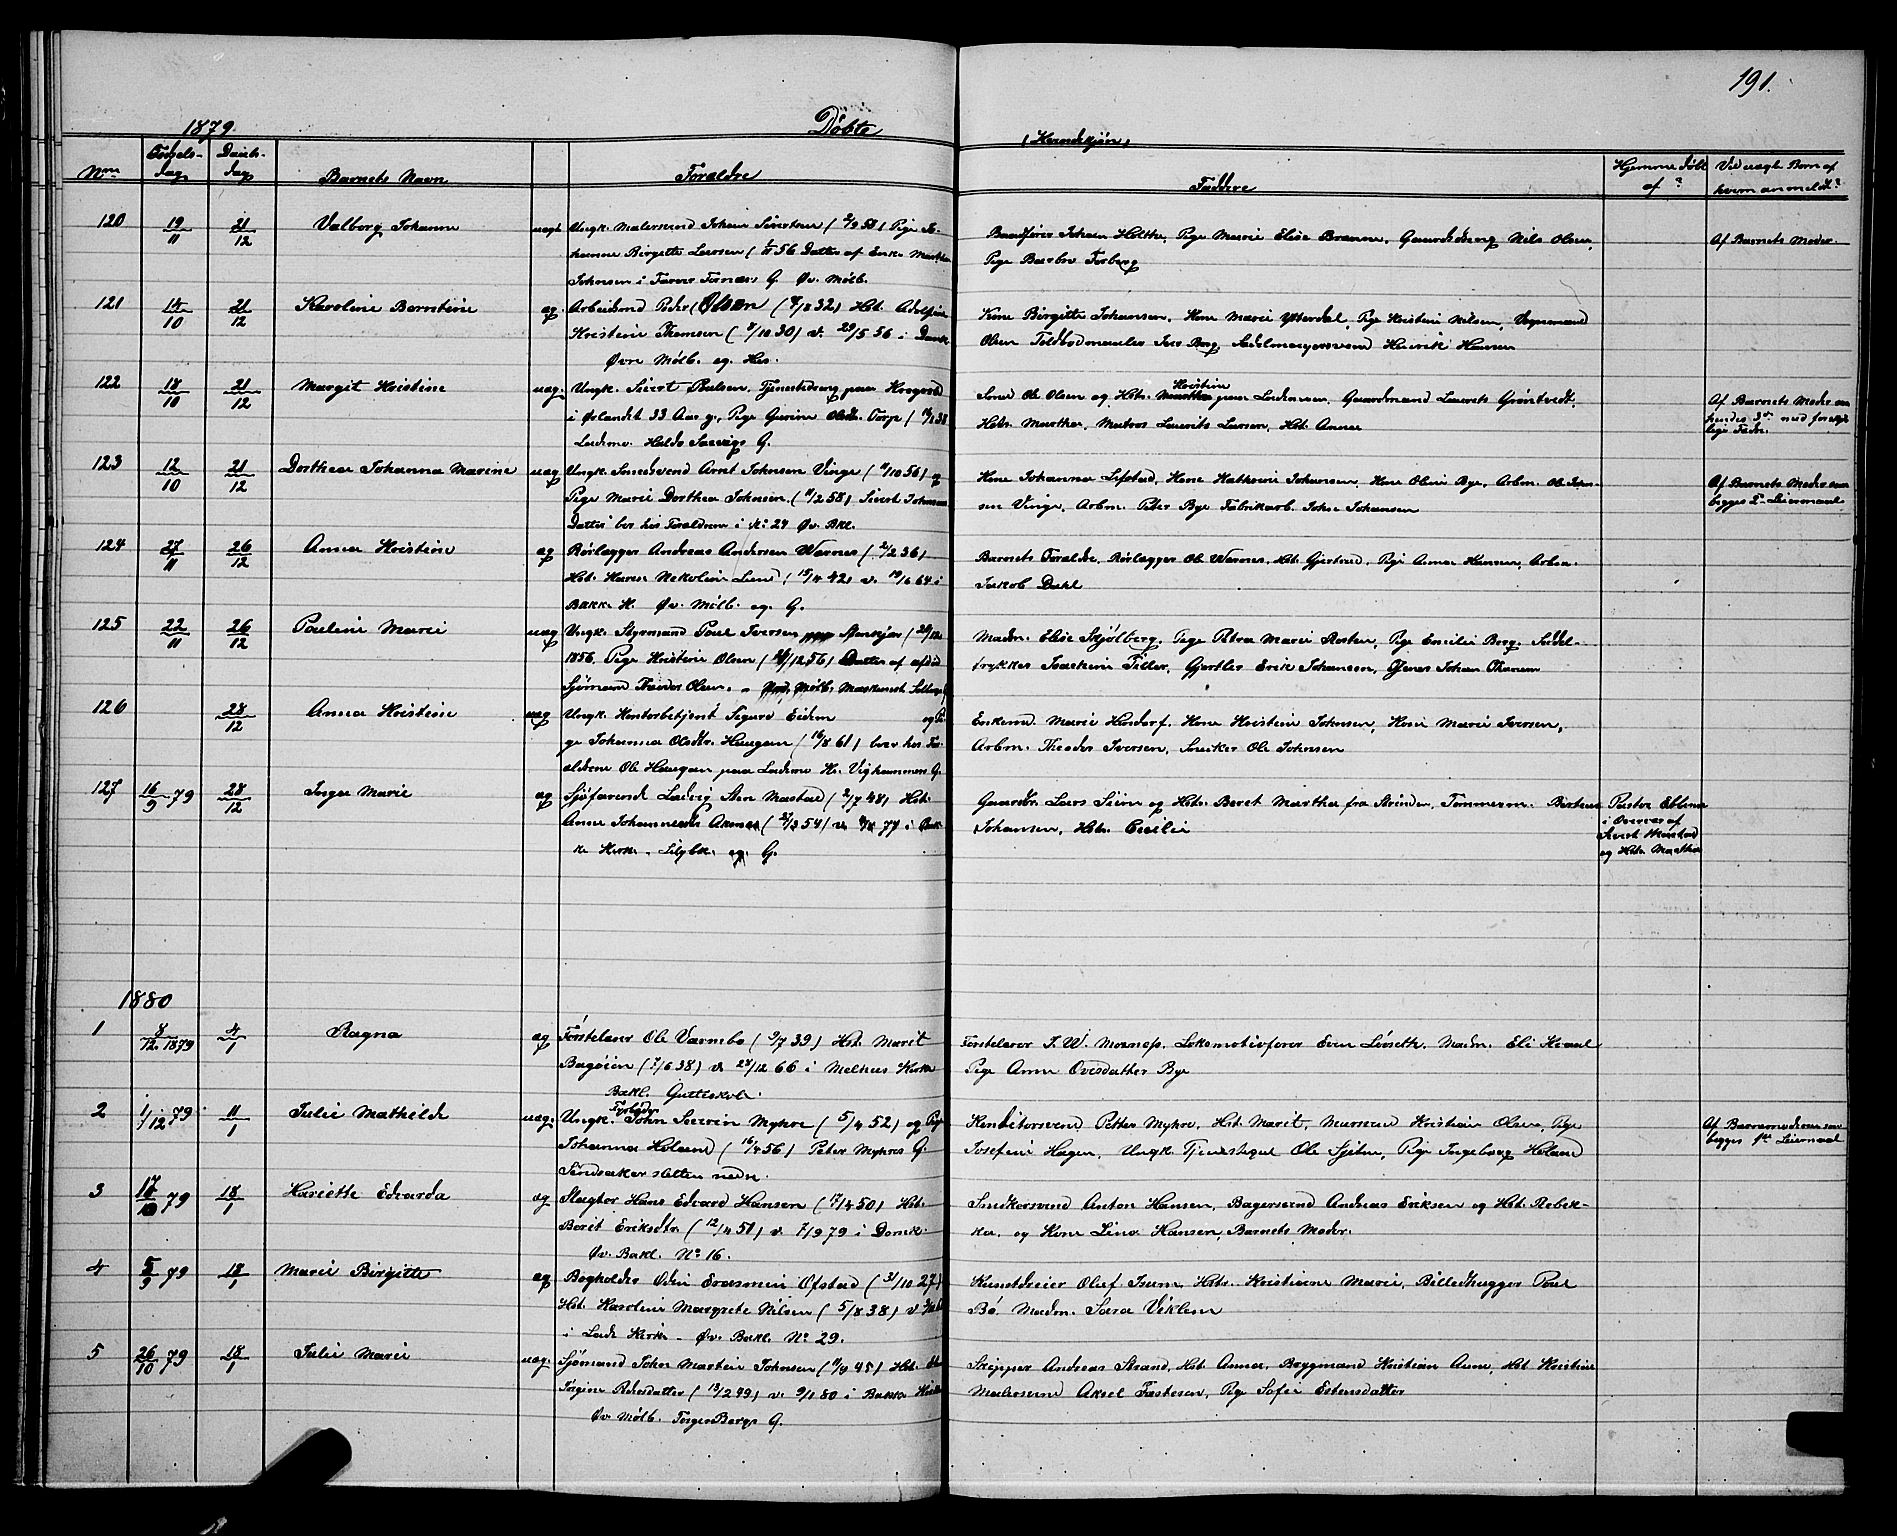 191.
1879.
Döbte
(Kvindekjön)
Nm
Födsels-
dag
Daabs-
dag
Barnets Navn
Forældre
Faddere
Hjemmedöbt
af ?
Ved uægte Børn af
hvem anmeldt?
120 19/11 21/12 Valborg Johanne uægt Ungk. Malersvend Johan Sivertsen (2/9 58) Pige Jo-
hanne Birgitte Larsen ( 56 Datter af Enke Martha
Johnsen i Farver Fornæs G. Øv. Mölb.
Johan Holthe, Pige Marie Elise Brænne, Gaardsdreng Nils Olsen,
Pige Barbro Forberg
Af Barnets Moder.
121 14/10 21/12 Karoline Berntine æg Arbeidsmd Peder Olsen ( /8 32) Hst. Adolfine
Kristine Thomsen ( /10 30) v. 29/5 56 i Domk.
Øvre Mölb. eg. Hus.
Kone Birgitte Johansen, Kone Marie Ytterdal, Pige Kristine Nilsen, Vognmand
Olsen Toldbodmaaler Iver Berg Sadelmagersvend Henrik Hansen
122 18/10 21/12 Margit Kristine uæg. Ungk. Sivert Poulsen, Tjenestedreng paa Krogvold
i Ørlandet 33 Aar g, Pige Gurine Olsdtr. Torp ( 38
Lademo. Halds G.
Smed Ole Olsen og Hstr. Kristine paa Lademoen, Gaardmand Laurits Gröntvedt,
Hstr. Martha, Matros Laurits Larsen, Hst. Anna
Af Barnets Moder som
hendes 3die med forskjel-
lige Fædre.
123 12/10 21/12 Dorthea Johanna Marine uæg Ungk. Smedsvend Arnt Johnsen Vinge ( /10 56) og
Pige Marie Dorthea Johnsen ( /2 58) Sivert Johnsens
Datter bor hos Forældrene i No 24 Øv. Bkl.
Kone Johanna Lefstad, Kone Kathrine Johansen, Kone Oline Bye, Arbm. Ole John-
sen Vinge, Arbm. Peter Bye Fabrikarb. Johs Johansen
Af Barnets Moder som
begges 2. Leiermaal
124 27/11 26/12 Anna Kristine æg Rörlægger Andreas Andersen Warnes ( /2 36)
Hst. Karen Nekoline Lund (15/11 42) v. 19/6 64 i
Bakk. K. Øv. Mölb. eg. G.
Barnets Forældre, Rörlægger Ole Warnes, Hst. Gjertrud, Pige Anna Hansen, Arbm.
Jakob Dahl
125 22/11 26/12 Pauline Marie uæg Ungk. Styrmand Poul Iversen Stenkjær ( /12
1856. Pige Kristine Olsen ( /12 56) Datter af afdöd
Sjömand Theodor Olsen. Mölb. Maskinist
Madm. Elise Skjölberg, Pige Petra Marie Rosten, Pige Emilie Berg, Saddel-
Joachim Tiller, Gjörtler Erik Johansen,
126 28/12 Anna Kristine uæg Ungk. Kontorbetjent Sigurd Eidem og Pi-
ge Johanna Olsdtr. Haugan (16/8 61) bor hos For-
ældrene Ole Haugan paa Lademo K. Vighammers G.
Enkemd. Marie Hosdorf. Kone Kristine Johnsen, Kone Marie Iversen,
Arbm. Theodor Iversen, Snekker Ole Johnsen
127 16/9 79 28/12 Inga Marie æg Sjöfarende Ludvig Sten Mastad (2/7 48) Hst.
Anne Johannesdtr Aames ( /3 54) v. 77 i Bak-
ke Kirke. Lilybk. eg. G.
Gaardbr. Lars Siem og Hstr. Beret Martha fra Strinden, Tömmerm. Birtius
Johansen, Hstr. Cecilie
Pastor
i Overvær af
Sivert
og Hstr. Martha
1880
1 8/12 1879 4/1 Ragna æg Förstelærer Ole Værnebo (9/7 39) Hst. Marit
Bagöien (7/6 38) v. 28/12 66 i Melhus Kirke
Bakl. Gutteskole.
Förstelærer J. W. Lokomotivförer Even Lövseth. Madm. Eli Kvaal
Pige Anne Ovesdatter Bye
2 1/12 79. 11/1 Julie Mathilde uæg. Ungk. Fyrböder John Severin Myhre (5/4 52) og Pige
Johanna Höland (16/4 56) Peter Myhres G.
Sandsaker sletten nedre.
Konditorsvend Petter Myhre, Hst. Marit, Murmand Kristian Olsen, Pige
Josefine Hagen, Ungk. Ole Sjetne, Pige Ingeborg Höland
Af Barnemoderen som
begges 1ste Leiermaal
3 17/10 79 18/1 Hariette Edvarda æg Slagter Hans Edvard Hansen (17/4 50) Hst.
Berit Eriksdtr. (12/4 51) v. 7/9 79 i Domk.
Øv. Bakl. No 16.
Snedkersvend Anton Hansen, Bagersvend Andreas Eriksen og Hst. Rebek-
ka, og Kone Lina Hansen, Barnets Moder.
4 5/9 79 18/1 Marie Birgitte æg Bogholder Odin Erasmin Ofstad (31/10 27)
Hst. Karoline Margrete Nilsen (5/8 38) v.
i Lade Kirke - Øv. Bakl. No 29.
Kunstdreier Oluf Isum, Hstr. Kristianne Marie, Billedhugger Paul
Bö, Madm. Sara Viklem
5 26/10 79 18/1 Julie Marie uæg. Sjömand John Martin Johnsen ( /9 45) Hst.
Jörgine Pedersdatter (13/2 49) v. 9/1 80 i Bakke Kirke
Øv. Mölb. Jörgen Bergs G.
Skipper Andreas Strand, Hst. Anna, Brygmand Kristian Aune, Hst. Kristine
Malersvend Aksel Fastesen, Pige Sofie Estensdatter